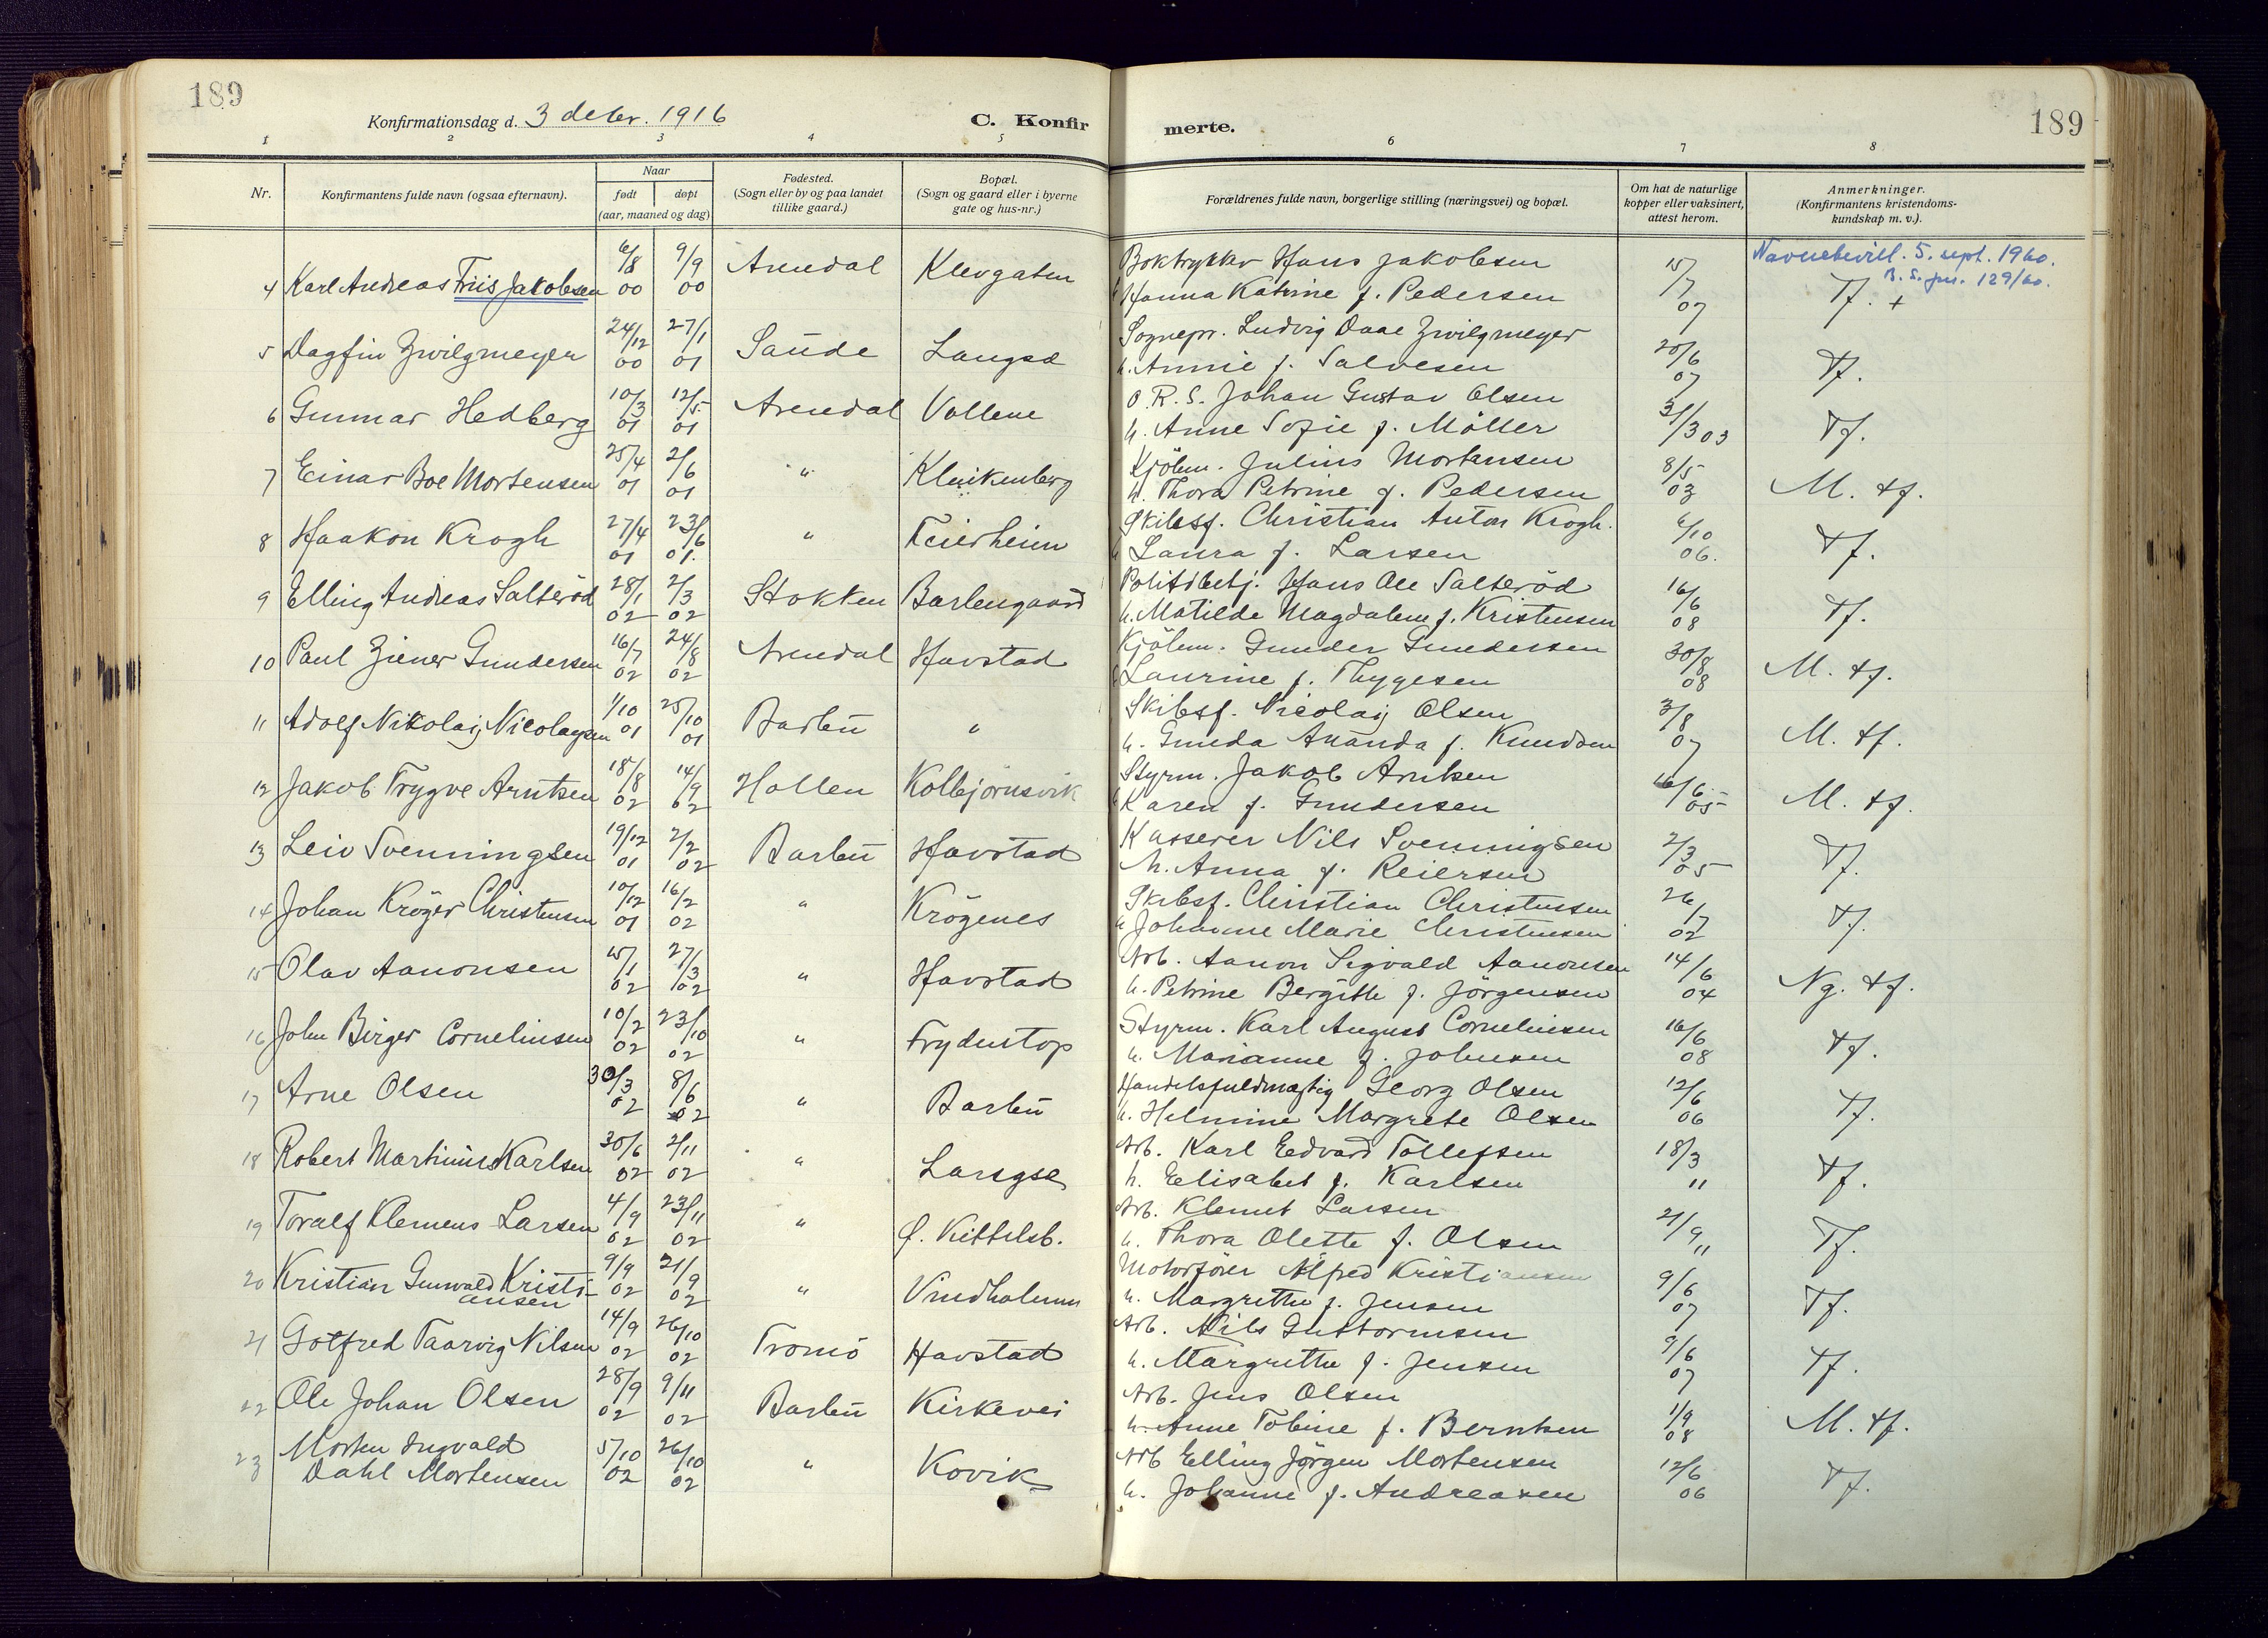 189
Konfirmationsdag d. 3 decbr. 1916
C. Konfir
merte.
189
1 2 3 4 5 6 7 8
Nr.
Konfirmantens fulde navn (ogsaa efternavn).
Naar
født døpt
(aar, maaned og dag)
Fødested.
(Sogn eller by og paa landet
tillike gaard.)
Bopæl.
(Sogn og gaard eller i byerne
gate og hus-nr.)
Forældrenes fulde navn, borgerlige stilling (næringsvei) og bopæl.
Om hat de naturlige
kopper eller vaksinert,
attest herom.
Anmerkninger.
(Konfirmantens kristendoms-
kundskap m. v.).
4 Karl Andreas Friis Jakobsen 6/8 00 9/9 00 Arendal Klevgaten
Boktrykker Hans Jakobsen 15/7 07 Navnebevill. 5. sept. 1960.
Hanna Katrine f. Pedersen Tf. + B. S. jnr. 129/60.
5 Dagfin Zwilgmeyer 24/12 00 27/1 01 Saude Langsæ
Sognepr. Ludvig Daae Zwilgmeyer 20/6 07 Tf.
h. Annie f. Salvesen
6 Gunnar Hedberg 10/3 01 12/5 01 Arendal Vollene
O.R.S. Johan Gustav Olsen 31/3 03 Tf.
h. Anne Sofie f. Möller
7 Einar Boe Mortensen 25/4 01 2/6 01 " Kleikenberg
Kjöbm. Julius Mortensen 8/5 03 M. tf.
h. Thora Petrine f. Pedersen
8 Haakon Krogh 27/4 01 23/6 01. " Feierheim
Skibsf. Christian Anton Krogh. 6/10 06. Tf.
h Laura f. Larsen
9 Elling Andreas Salteröd 28/1 02 2/3 02 Stokken Barlengaard
Politibetj. Hans Ole Salteröd 16/6 08 Tf.
h. Matilde Magdalene f. Kristensen
10 Paul Ziener Gundersen 16/7 02 24/8 02 Arendal Havstad
Kjöbm. Gunder Gundersen 30/8 08 M. tf.
Laurine f. Thygesen
11 Adolf Nikolaij Nicolaysen 1/10 01 25/10 01 Barbu "
Skibsf. Nicolaij Olsen 3/8 07 M. tf.
h. Gunda Ananda f. Knudsen
12 Jakob Trygve Arntsen 18/8 02 14/9 02 Hollen Kolbjörnsvik
Styrm. Jakob Arntsen 16/6 05 M. tf.
Karen f. Gundersen
13 Leiv Svenningsen 19/12 01 2/2 02 Barbu Havstad
Kasserer Nils Svenningsen 2/3 05 Tf.
h. Anna f. Reiersen
14 Johan Kröger Christensen 10/12 01 16/2 02 " Krögenes
Skibsf. Christian Christensen 26/7 02 Tf.
h Johanne Marie Christensen
15 Olav Aanonsen 15/1 02 27/3 02 " Havstad
Arb. Aanon Sigvald Aanonsen 14/6 04 Ng. tf.
h. Petrine Bergitte f. Jörgensen
16 John Birger Corneliusen 10/2 02 23/10 02 " Frydentop
Styrm. Karl August Corneliusen 16/6 08 Tf.
h. Marianne f. Johnsen
17 Arne Olsen 30/3 02 8/6 02 " Barbu
Handelsfuldmægtig Georg Olsen 12/6 06 Tf.
h. Helmine Margrete Olsen
18 Robert Martinius Karlsen 30/6 02 2/11 02 " Larsgse
Arb. Karl Edvard Tollefsen 18/3 11 Tf.
h. Elisabet f. Karlsen
19 Toralf Klemens Larsen 4/9 02 23/11 02 " Ø. Kittelsb.
Arb. Klemet Larsen 21/9 11 Tf.
h. Thora Olette f. Olsen
20 Kristian Gunvald Kristi- 9/9 02 21/9 02 " Vindholmen
ansen
Motorförer Alfred Kristiansen 9/6 07 Tf.
h. Margrethe f. Jensen
21 Gotfred Taarvig Nilsen 14/9 02 26/10 02 Tromö Havstad
Arb. Nils Guttormsen 9/6 07 Tf.
h. Margrethe f. Jensen
22 Ole Johan Olsen 28/9 02 9/11 02 Barbu Kirkevei
Arb. Jens Olsen 1/9 08 M. tf.
h. Anne Tobine f. Berntsen
23 Morten Ingvald 5/10 02 26/10 02 " Kovik
Dahl Mortensen
Arb Elling Jörgen Mortensen 12/6 06 Tf.
h. Johanne f. Andreasen